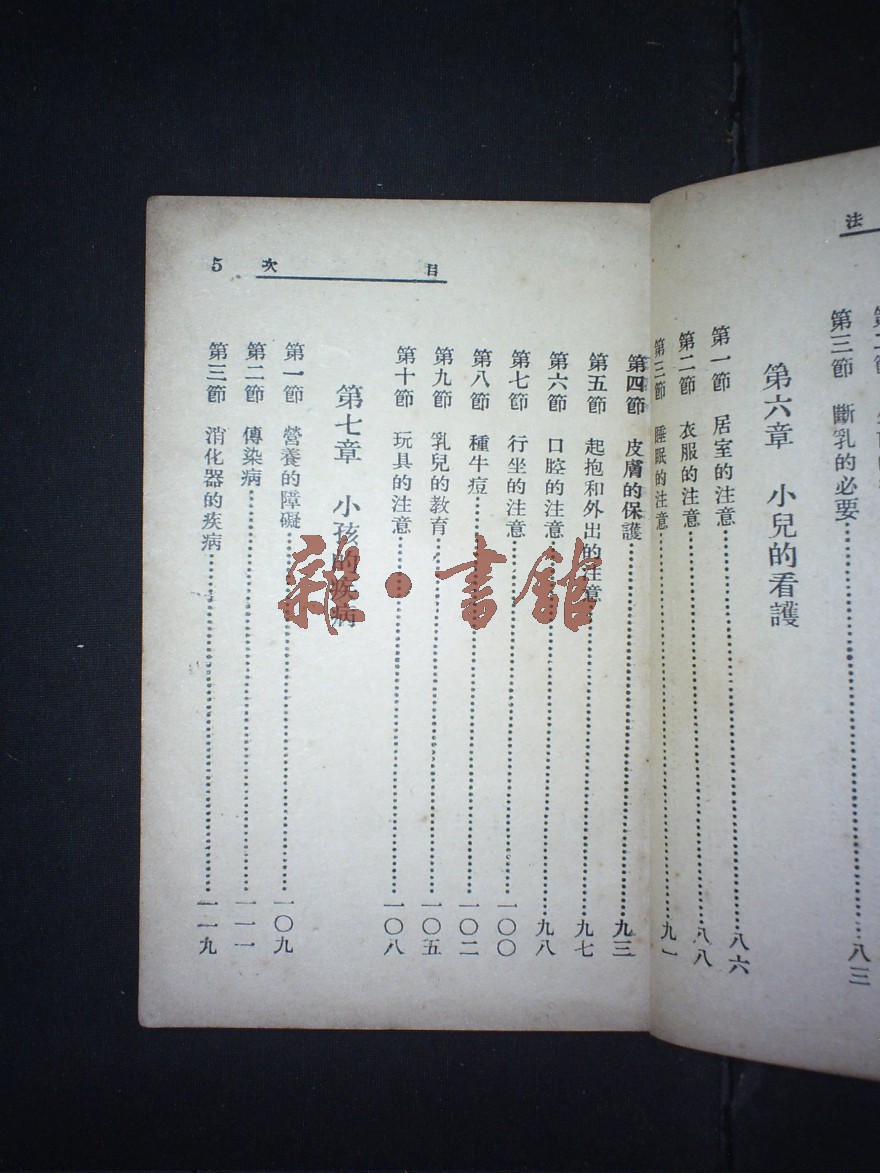 法
第三節　斷乳的必要…八三
第六章　小兒的看護
第一節　居室的注意…八六
第二節　衣服的注意…八八
第三節　睡眠的注意…九一
目次 5
第四節　皮膚的保護…九三
第五節　起抱和外出的注意…九七
第六節　口腔的注意…九八
第七節　行坐的注意…一〇〇
第八節　種牛痘…一〇二
第九節　乳兒的教育…一〇五
第十節　玩具的注意…一〇八
第七章　小孩的疾病
第一節　營養的障礙…一〇九
第二節　傳染病…一一一
第三節　消化器的疾病…一一九
雜·書館